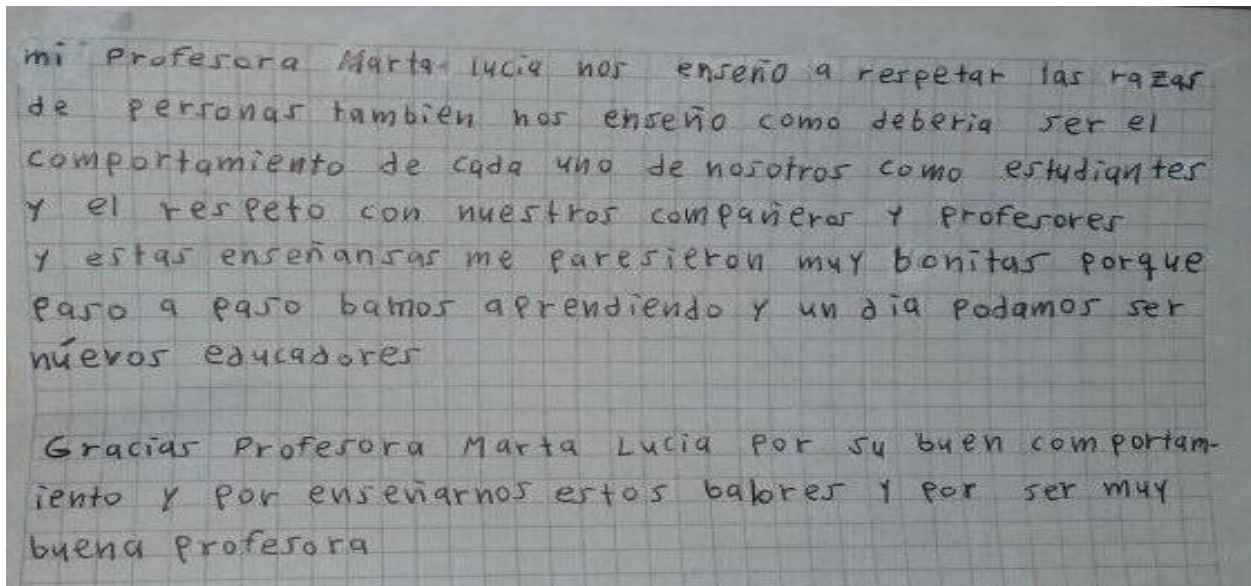 mi profesora Marta lucia nos enseño a respetar las razas
de personas tambien nos enseño como deberia ser el
comportamiento de cada uno de nosotros como estudiantes
y el respeto con nuestros compañeros y profesores
y estas enseñansas me paresieron muy bonitas porque
paso a paso bamos aprendiendo y un dia podamos ser
núevos educadores
Gracias profesora Marta Lucia por su buen comportam-
iento y por enseñarnos estos balores y por ser muy
buena profesora